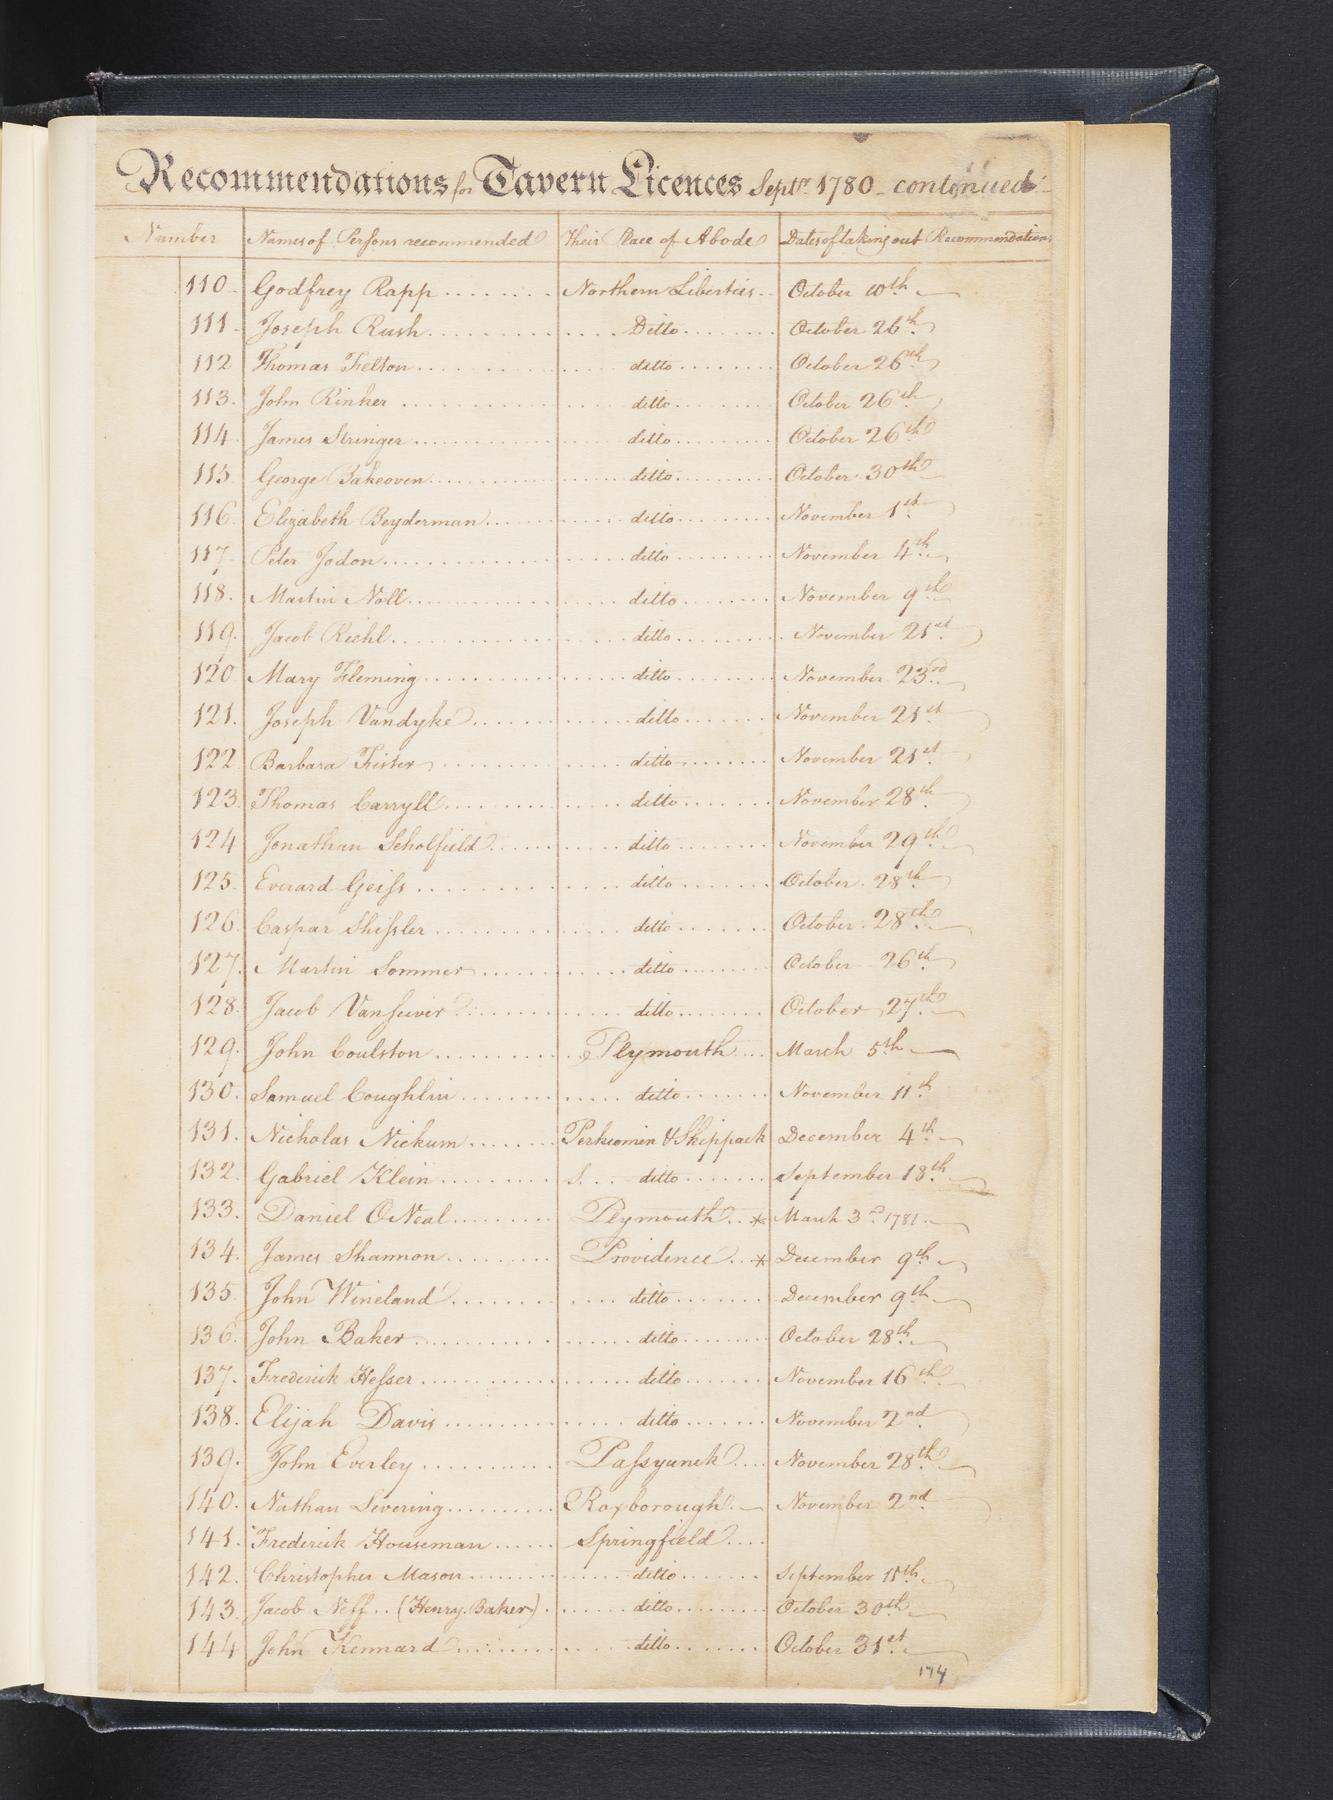 Recommendations for Tavern Licences Septr. 1780 - continued
Number Names of Persons recommended Their Place of Abode Dates of taking out Recommendations
110 Godfrey Rapp ........ Northern Liberties .. October 10th
111 Joseph Rush ........ Ditto ........ October 26th
112 Thomas Felton ........ ditto ........ October 26th
113. John Rinker ........ ditto ........ October 26th
114. James Stringer ........ ditto ........ October 26th
115. George Bakeoven ........ ditto ........ October 30th
116. Elizabeth Beyderman ........ ditto ........ November 1st
117. Peter Jodon ........ ditto ........ November 4th
118. Martin Noll ........ ditto ........ November 9th
119. Jacob Riehl ........ ditto ........ November 21st
120 Mary Fleming ........ ditto ........ November 23rd
121. Joseph Vandyke ........ ditto ........ November 21st
122 Barbara Fister ........ ditto ........ November 21st
123. Thomas Carryll ........ ditto ........ November 28th
124 Jonathan Scholfield ........ ditto ........ November 29th
125. Everard Geiss ........ ditto ........ October 28th
126. Caspar Shissler ........ ditto ........ October 28th
127. Martin Sommer ........ ditto ........ October 26th
128. Jacob Vansciver ........ ditto ........ October 27th
129. John Coulston ........ Plymouth .... March 5th
130. Samuel Coughlin ........ ditto ........ November 11th
131. Nicholas Nickum ........ Perkiomin & Skippack December 4th
132. Gabriel Klein ........ S... ditto ........ September 18th
133. Daniel ONeal ........ Plymouth .. * March 3d. 1781.
134. James Shannon ........ Providence .. * December 9th
135. John Wineland ........ ditto ........ December 9th
136. John Baker ........ ditto ........ October 28th
137. Frederick Hesser ........ ditto ........ November 16th
138. Elijah Davis ........ ditto ........ November 2nd
139. John Everley ........ Passyunck .... November 28th
140. Nathan Levering ........ Roxborough. November 2nd
141. Frederick Houseman ...... Springfield ....
142. Christopher Mason ........ ditto ........ September 15th
143. Jacob Neff .. (Henry Baker) ........ ditto ........ October 30th
144 John Kennard ........ ditto ........ October 31st
174